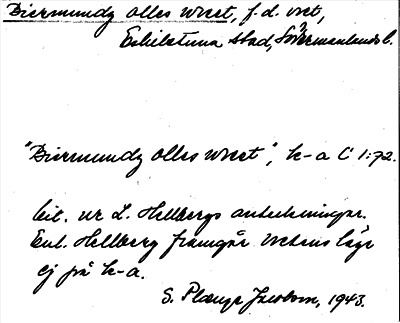 Diermundz olles wreet, f.d. vret,
Eskilstuna stad, Södermanlands l.
"Diermundz olles wreet", k-a C 1:72.
cit. ur L. Hellbergs anteckningar.
Enl. Hellberg framgår vretens läge
ej på k-a.
S. Plænge Jacobson, 1943.